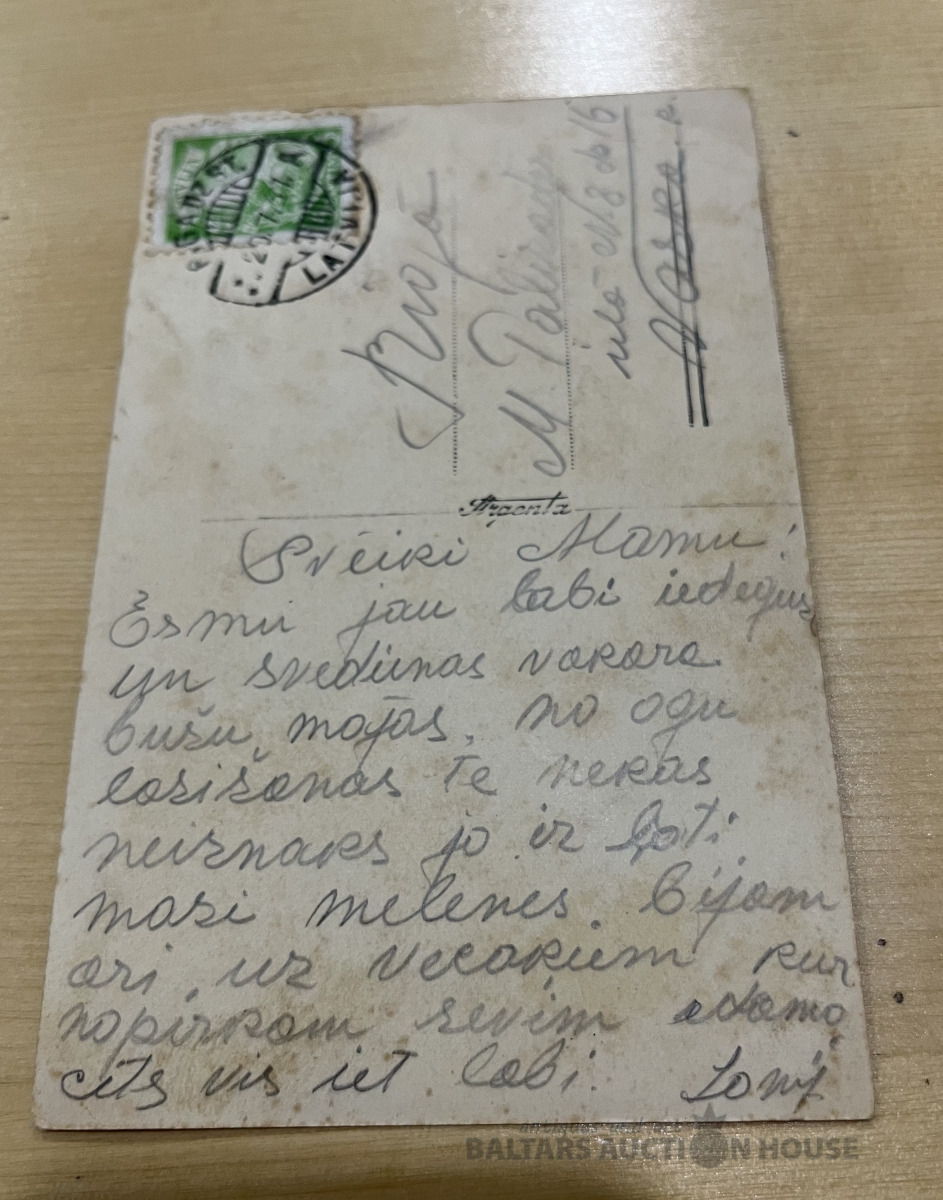 LATVIJA
Rīgā
M.
ielā № 8 dz 15
Argenta
Sveiki Mamu!
Esmu jau labi iedegus
un svedienas vakara
bušu, majās, no ogu
lasišanas te nekas
neiznaks jo ir ļoti
mazi melenes. Bijam
ari uz Vecakiem kur
nopirkam sevim edamo
cits vis iet labi.
BALTARS AUCTION HOUSE